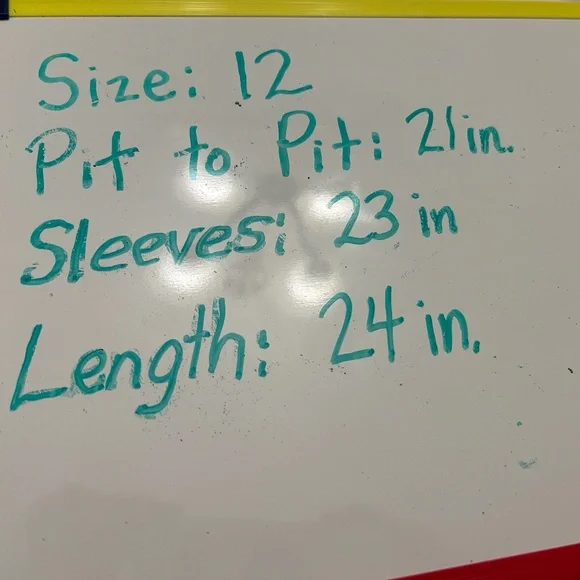 Size: 12
Pit to Pit: 21in.
Sleeves: 23 in
Length: 24 in.